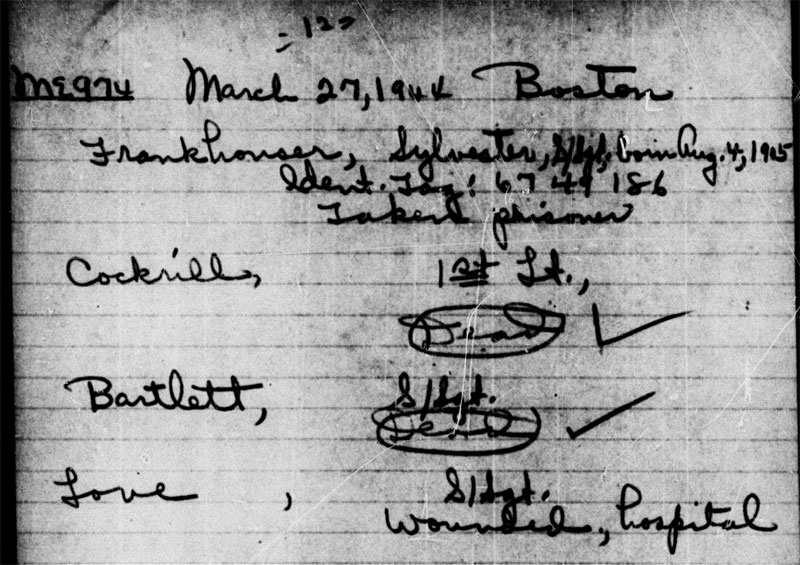 - 12 -
ME974 March 27, 1944 Boston
Frankhouser, Sylvester, S/Sgt. born Aug. 4, 1915
Ident. Tag: 67 49 186
Taken prisoner
Cockrill, 1st Lt.,
Dead
Bartlett, S/Sgt.
Dead
Love , S/Sgt.
Wounded, hospital